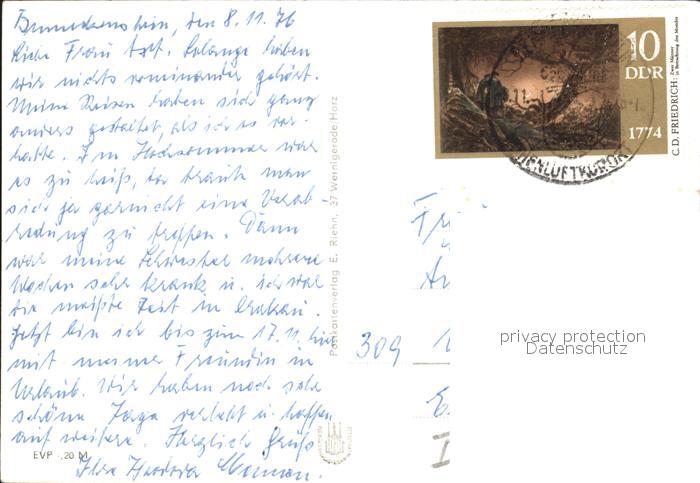 Benneckenstein, den 8.11.76
Liebe Frau Ast. Solange haben
wir nichts voneinander gehört.
Meine Reisen haben sich ganz
anders gestaltet, als ich es vor-
hatte. Im Hochsommer war
es zu heiß, da traute man
sich ja garnicht eine Verab-
redung zu treffen. Dann
war meine Schwester mehrere
Wochen sehr krank u. ich war
die meiste Zeit in
Jetzt bin ich bis zum 17.11. hier
mit meiner Freundin in
Urlaub. Wir haben noch sehr
schöne Tage verlebt u. hoffen
auf weitere. Herzlich Grüß
Ihre
EVP -,20 M
Postkartenverlag E. Riehn, 37 Wernigerode/Harz
10
DDR
1774
C.D. FRIEDRICH: Zwei Männer
in Betrachtung des Mondes
ENLUFTKURORT
309
privacy protection
Datenschutz